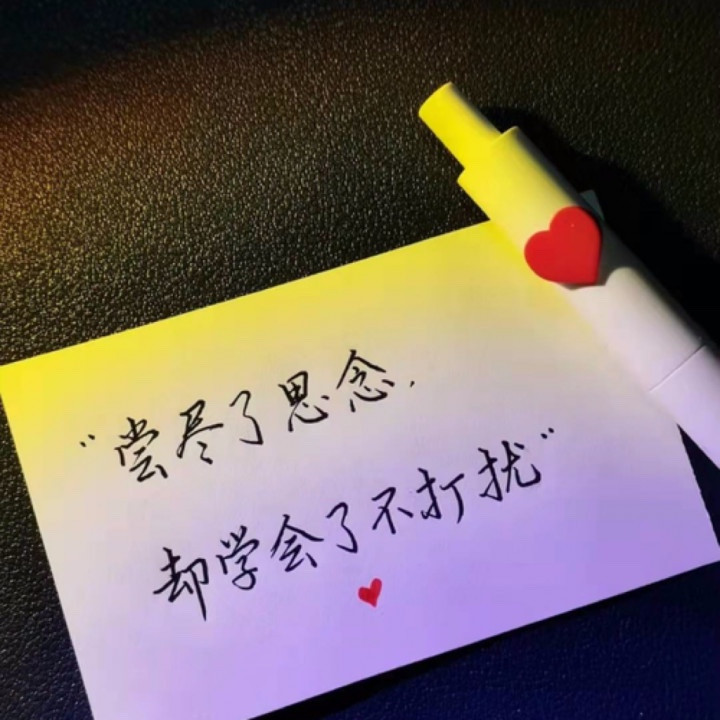 “尝尽了思念，
却学会了不打扰”